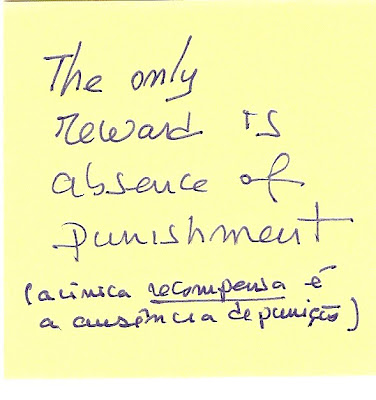 The only
reward is
absence of
punishment
(a única recompensa é
a ausência de punição)